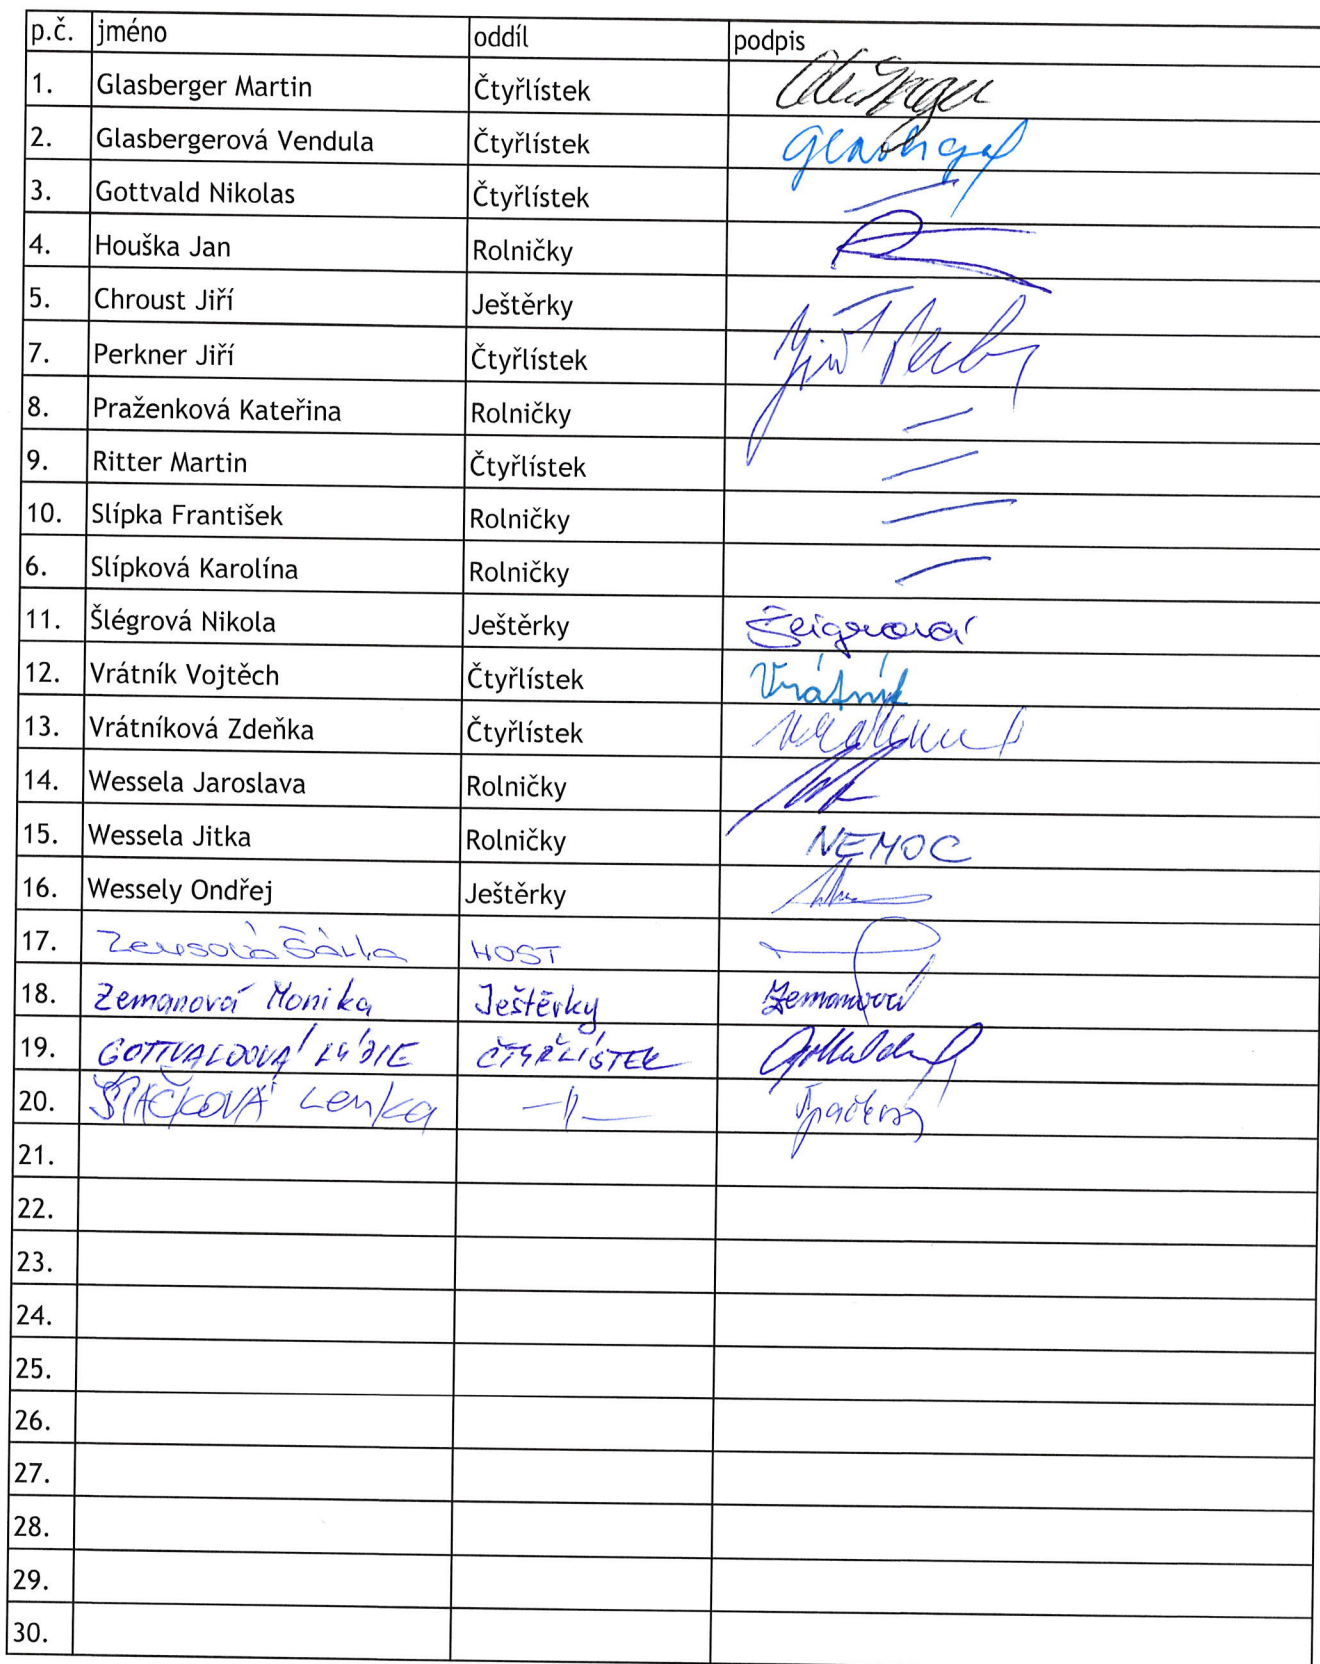 p.č. jméno oddíl podpis
1. Glasberger Martin Čtyřlístek
2. Glasbergerová Vendula Čtyřlístek
3. Gottvald Nikolas Čtyřlístek
4. Houška Jan Rolničky
5. Chroust Jiří Ještěrky
7. Perkner Jiří Čtyřlístek
8. Praženková Kateřina Rolničky
9. Ritter Martin Čtyřlístek
10. Slípka František Rolničky
6. Slípková Karolína Rolničky
11. Šlégrová Nikola Ještěrky
12. Vrátník Vojtěch Čtyřlístek Vrátník
13. Vrátníková Zdeňka Čtyřlístek
14. Wessela Jaroslava Rolničky
15. Wessela Jitka Rolničky NEMOC
16. Wessely Ondřej Ještěrky
17. Šárka HOST
18. Zemanová Monika Ještěrky Zemanová
19. GOTTVALDOVÁ LÝDIE ČTYŘLÍSTEK
20. ŠPAČKOVÁ Lenka -||-
21.
22.
23.
24.
25.
26.
27.
28.
29.
30.